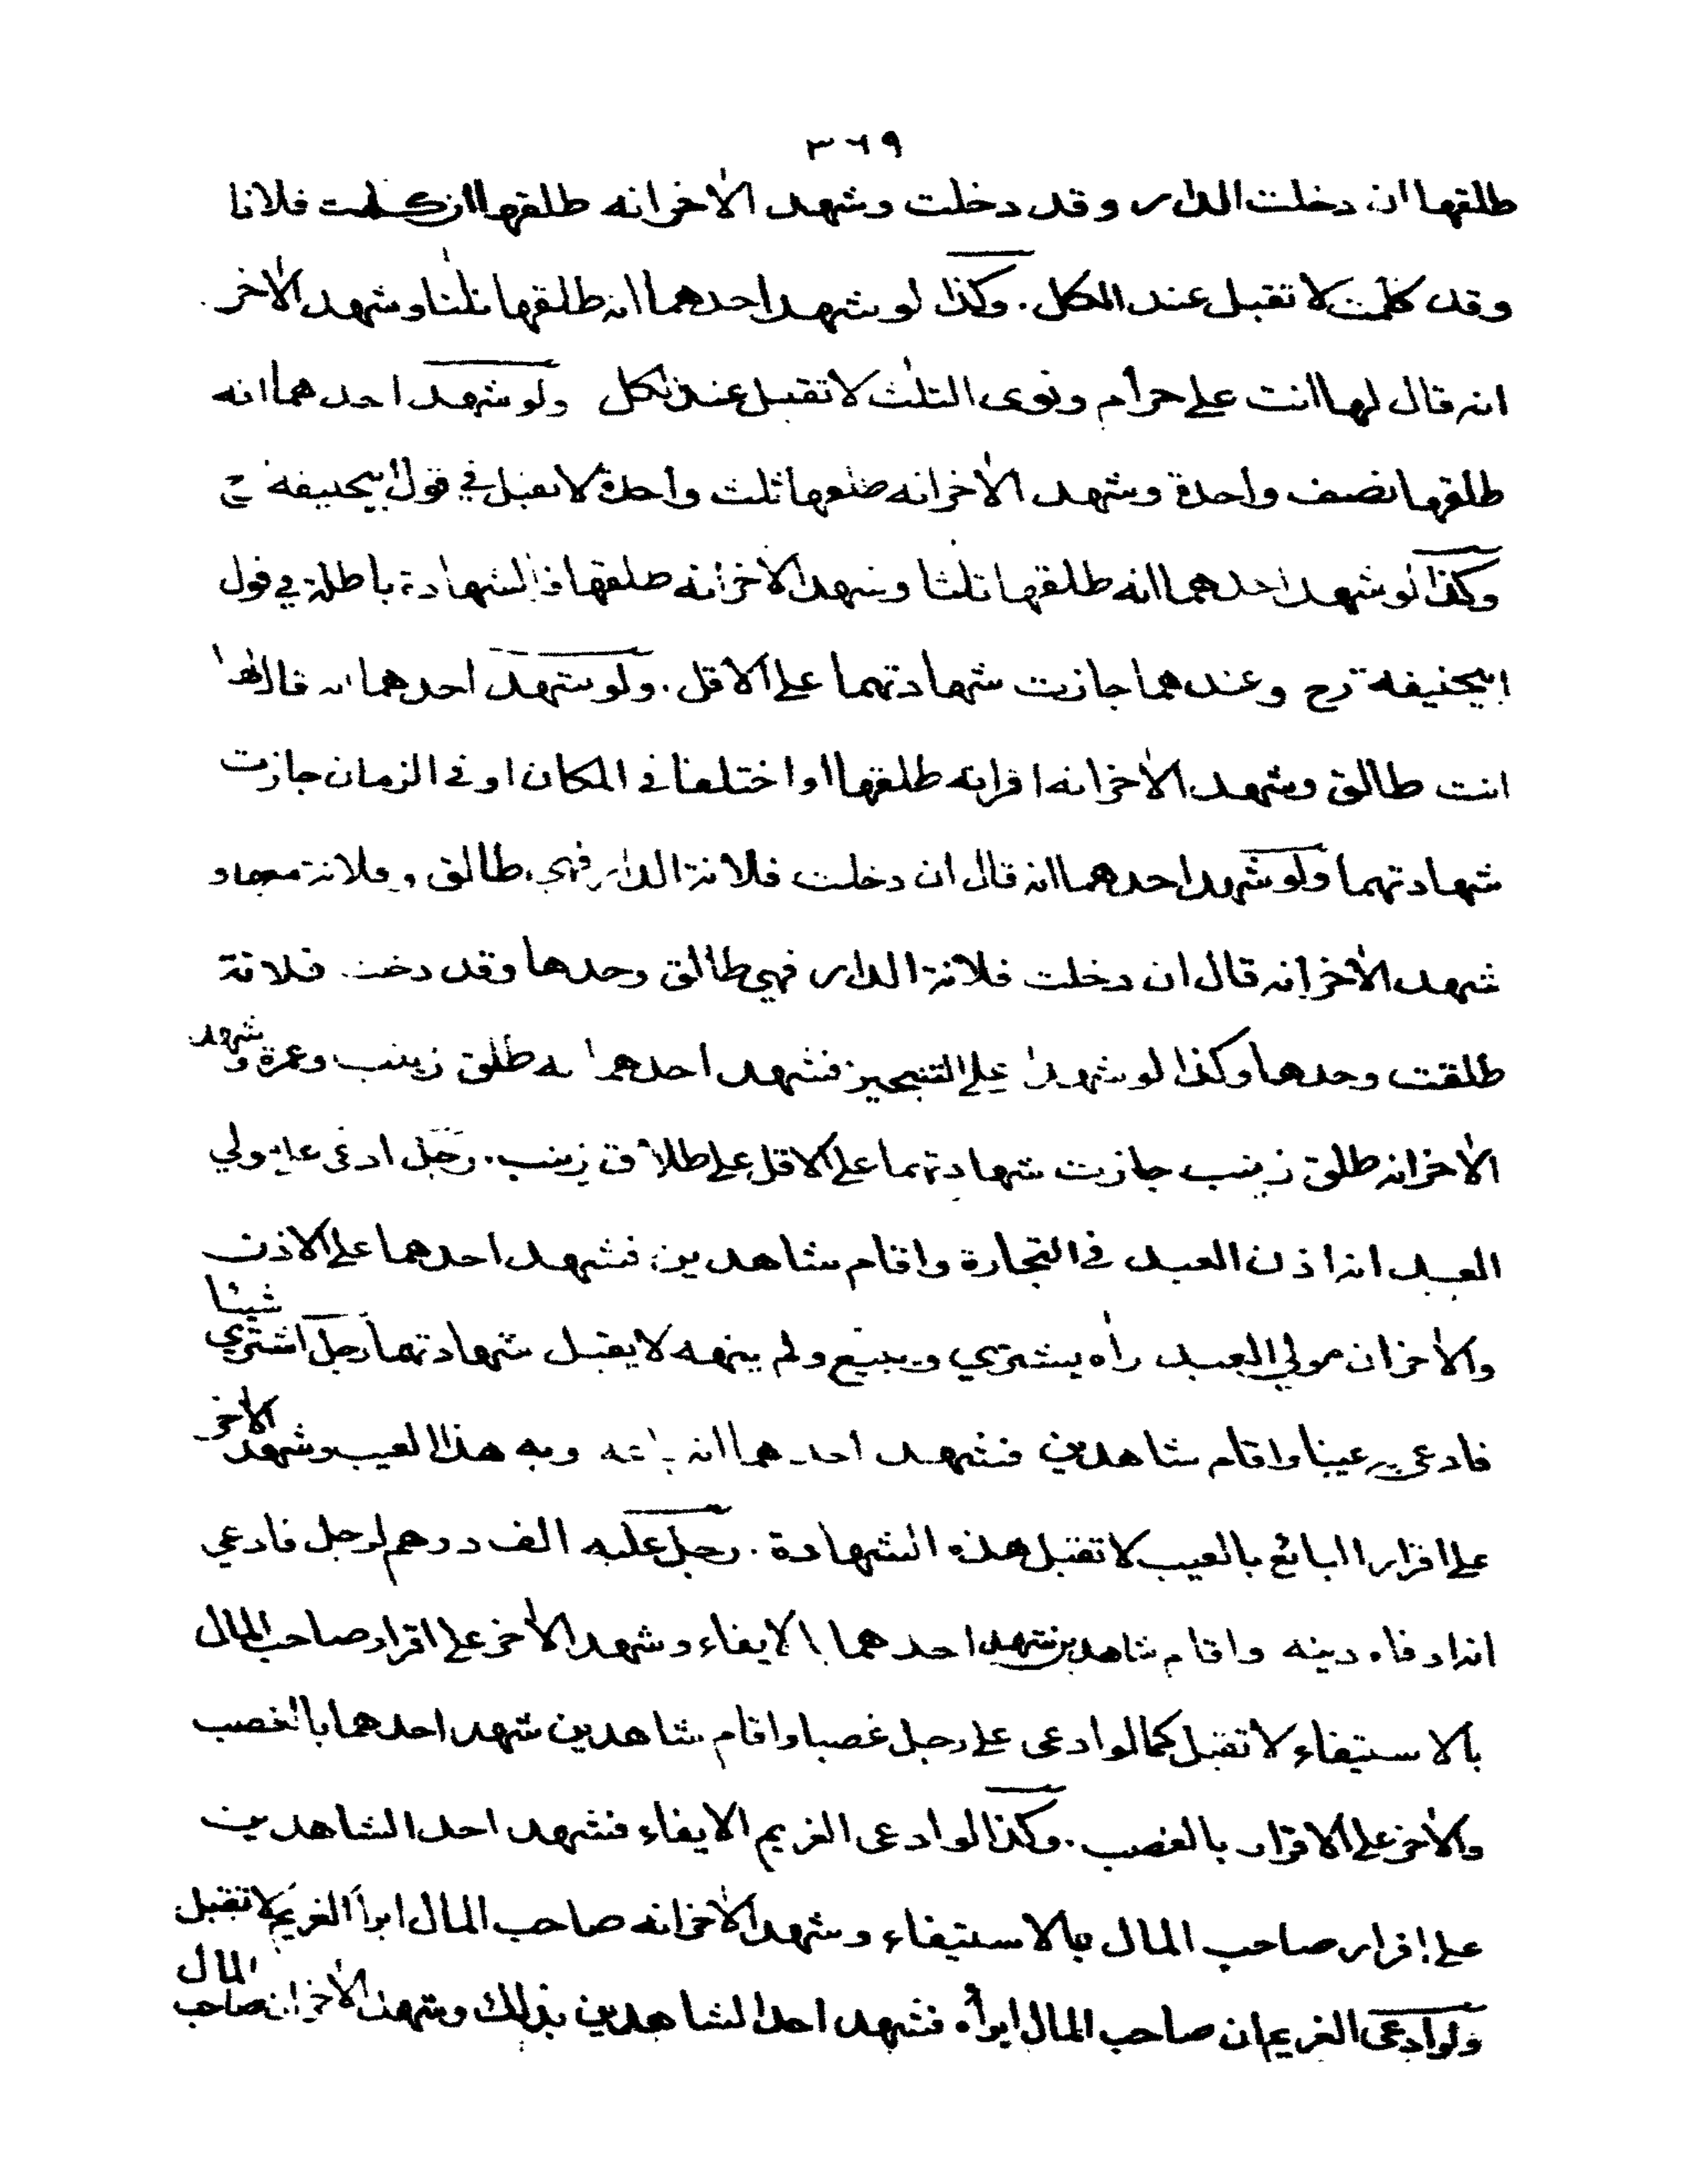 ٣٦٩
طلقها ان دخلت الدار وقد دخلت وشهد الاخر انه طلقها ان كلمت فلانا
وقد كلمت لا تقبل عند الكل . وكذا لو شهد احدهما انه طلقها ثلثا وشهد الاخر
انه قال لها انت على حرام ونوى الثلث لا تقبل عند الكل ولو شهد احدهما انه
طلقها نصف واحدة وشهد الاخر انه طلقها ثلث واحدة لا تقبل في قول ابيحنيفة رح
وكذا لو شهد احدهما انه طلقها ثلثا وشهد الاخر انه طلقها فالشهادة باطلة في قول
ابيحنيفة رح وعندهما جازت شهادتهما على الاقل . ولو شهد احدهما انه قال لها
انت طالق وشهد الاخر انه اقر انه طلقها او اختلفا في المكان او في الزمان جازت
شهادتهما ولو شهد احدهما انه قال ان دخلت فلانة الدار فهي طالق وفلانة معها و
شهد الاخر انه قال ان دخلت فلانة الدار فهي طالق وحدها وقد دخلت فلانة
طلقت وحدها وكذا لو شهدا على التنجيز فشهد احدهما انه طلق زينب وعمرة وشهد
الاخر انه طلق زينب جازت شهادتهما على الاقل على طلاق زينب . رجل ادعى على مولي
العبد انه اذن العبد في التجارة واقام شاهدين فشهد احدهما على الاذن
والاخر ان مولي العبد راه يشتري ويبيع ولم ينهه لا يقبل شهادتهما رجل اشتري شيئا
فادعى به عيبا واقام شاهدين فشهد احدهما انه باعه وبه هذا العيب وشهد الاخر
على اقرار البائع بالعيب لا تقبل هذه الشهادة . رجل عليه الف درهم لرجل فادعي
انه اوفاه دينه واقام شاهدين شهد احدهما بالايفاء وشهد الاخر على اقرار صاحب المال
بالاستيفاء لا تقبل كما لو ادعى على رجل غصبا واقام شاهدين شهد احدهما بالغصب
والاخر على الاقرار بالغصب . وكذا لو ادعى الغريم الايفاء فشهد احد الشاهدين
على اقرار صاحب المال بالاستيفاء وشهد الاخر انه صاحب المال ابرأ الغريم لا تقبل
ولو ادعى الغريم ان صاحب المال ابرأه فشهد احد الشاهدين بذلك وشهد الاخر ان صاحب المال